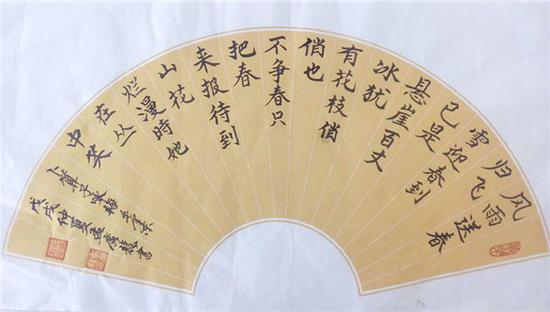 风雨送春
归飞
雪迎春到
已是
悬崖百丈
冰犹
有花枝俏
俏也
不争春只
把春
来报待到
山花
烂漫時她
在丛
中笑
卜算子咏梅
戊戌仲夏 書